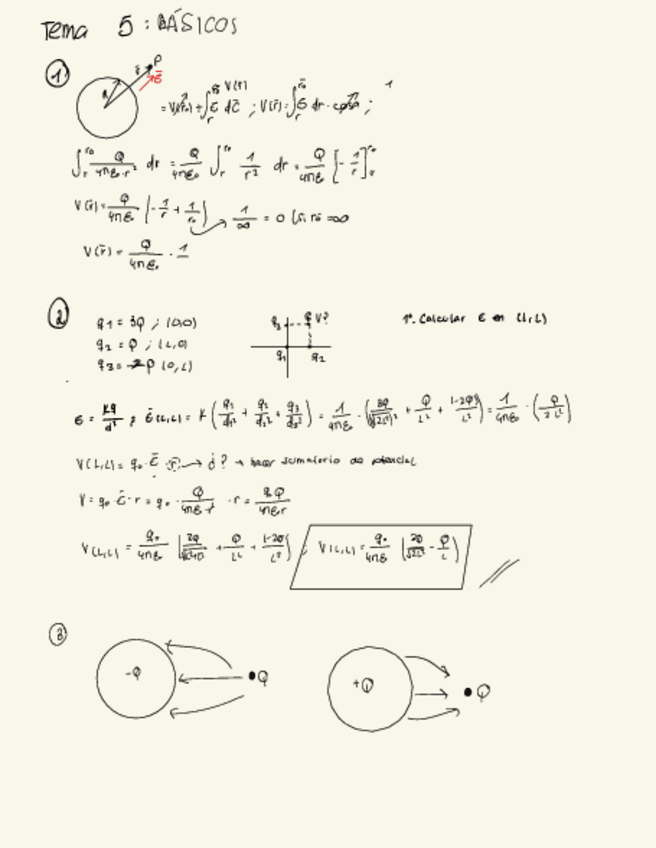 Tema 5: BÁSICOS
1
P
R
= V(r₀) + ∫ E dr ; V(r) = ∫ E dr · cosα ;
∫ Q/4πε₀·r² dr = Q/4πε₀ ∫ 1/r² dr = Q/4πε₀ [-1/r]
V(r) = Q/4πε₀ (-1/r + 1/r₀) → 1/∞ = 0 (si r₀ = ∞
V(r) = Q/4πε₀ · 1
2
q₁ = 3Q ; (0,0)
q₂ = Q ; (L,0)
q₃ = -2Q (0,L)
q₃ V?
q₁ q₂
1º. Calcular E en (L,L)
E = Kq/d² ; E(L,L) = K (q₁/d₁² + q₂/d₂² + q₃/d₃²) = 1/4πε₀ · (3Q/(√2L)² + Q/L² + (-2Q)/L²) = 1/4πε₀ · (Q/2L²)
V(L,L) = q₀ · E · r → ¿? → hacer sumatorio de potencial
V = q₀ · E · r = q₀ · Q/4πε₀ r² · r = q₀Q/4πε₀r
V(L,L) = q₀/4πε₀ + Q/L² + (-2Q)/L² ; V(L,L) = q₀/4πε₀ (3Q/√2L² - Q/L)
3
-Q
Q
+Q
Q